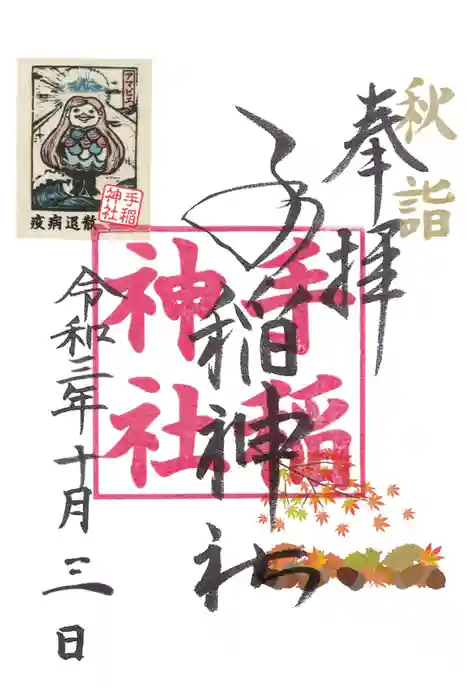 秋詣
奉拝
手稲神社
手稲
神社
令和三年十月三日
アマビエ
手稲
神社
疫病退散